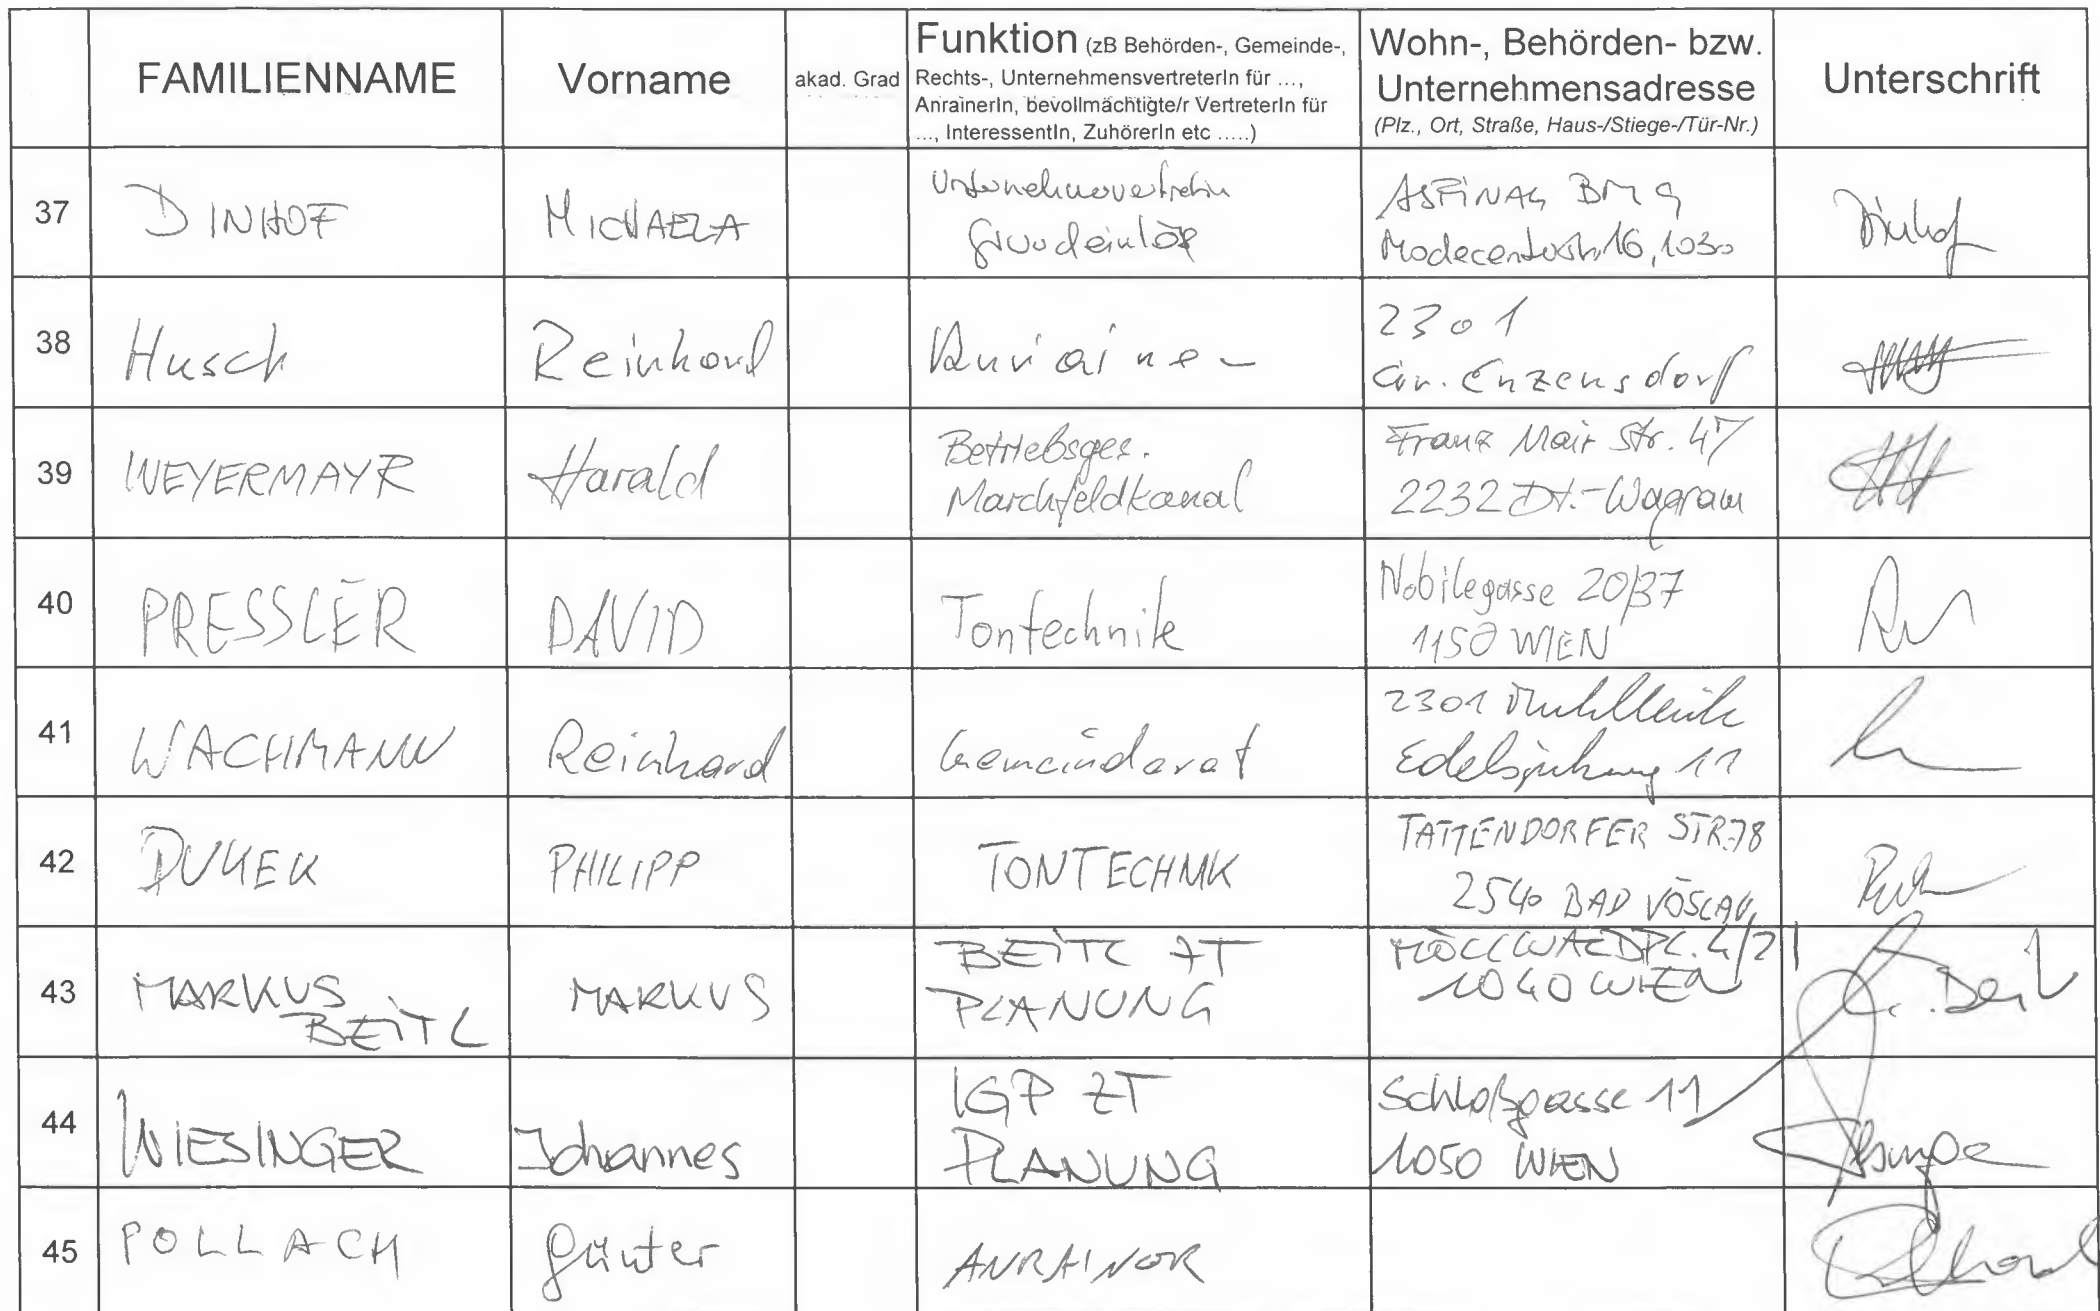 FAMILIENNAME
Vorname
akad. Grad
Funktion (zB Behörden-, Gemeinde-,
Rechts-, UnternehmensvertreterIn für ...,
AnrainerIn, bevollmächtigte/r VertreterIn für
..., InteressentIn, ZuhörerIn etc .....)
Wohn-, Behörden- bzw.
Unternehmensadresse
(Plz., Ort, Straße, Haus-/Stiege-/Tür-Nr.)
Unterschrift
37
DINHOF
MICHAELA
Grundeinlöse
ASFINAG BMG
Modecenterstr. 16, 1030
Dinhof
38
Husch
Reinhard
Anrainer
2301
Gr. Enzensdorf
39
WEYERMAYR
Harald
Betriebsges.
Marchfeldkanal
Franz Mair Str. 47
2232 Dt.-Wagram
40
PRESSLER
DAVID
Tontechnik
Nobilegasse 20/37
1150 WIEN
41
WACHMANN
Reinhard
Gemeinderat
2301 Mühlleiten
11
42
DUHEK
PHILIPP
TONTECHNIK
TATTENDORFER STR. 78
2540 BAD VÖSLAU
43
MARKUS
BEITL
MARKUS
BEITL ZT
PLANUNG
MÖLLWALDPL. 4/21
1040 WIEN
44
WIESINGER
Johannes
IGP ZT
PLANUNG
Schloßgasse 11
1050 WIEN
45
POLLACH
Günter
ANRAINER